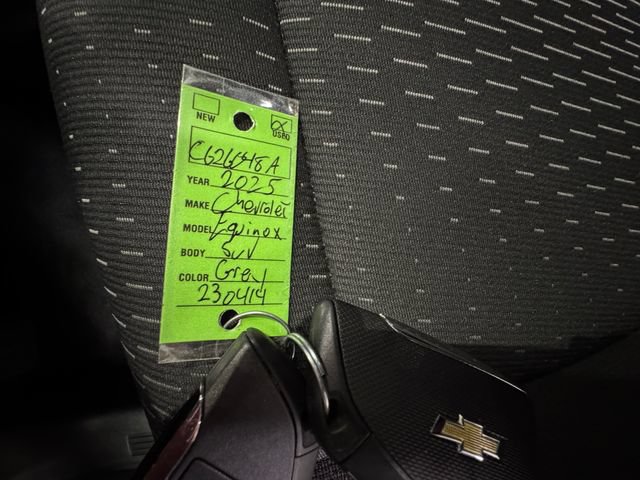 NEW
USED
YEAR 2025
MAKE Chevrolet
MODEL Equinox
BODY Suv
COLOR Grey
230414